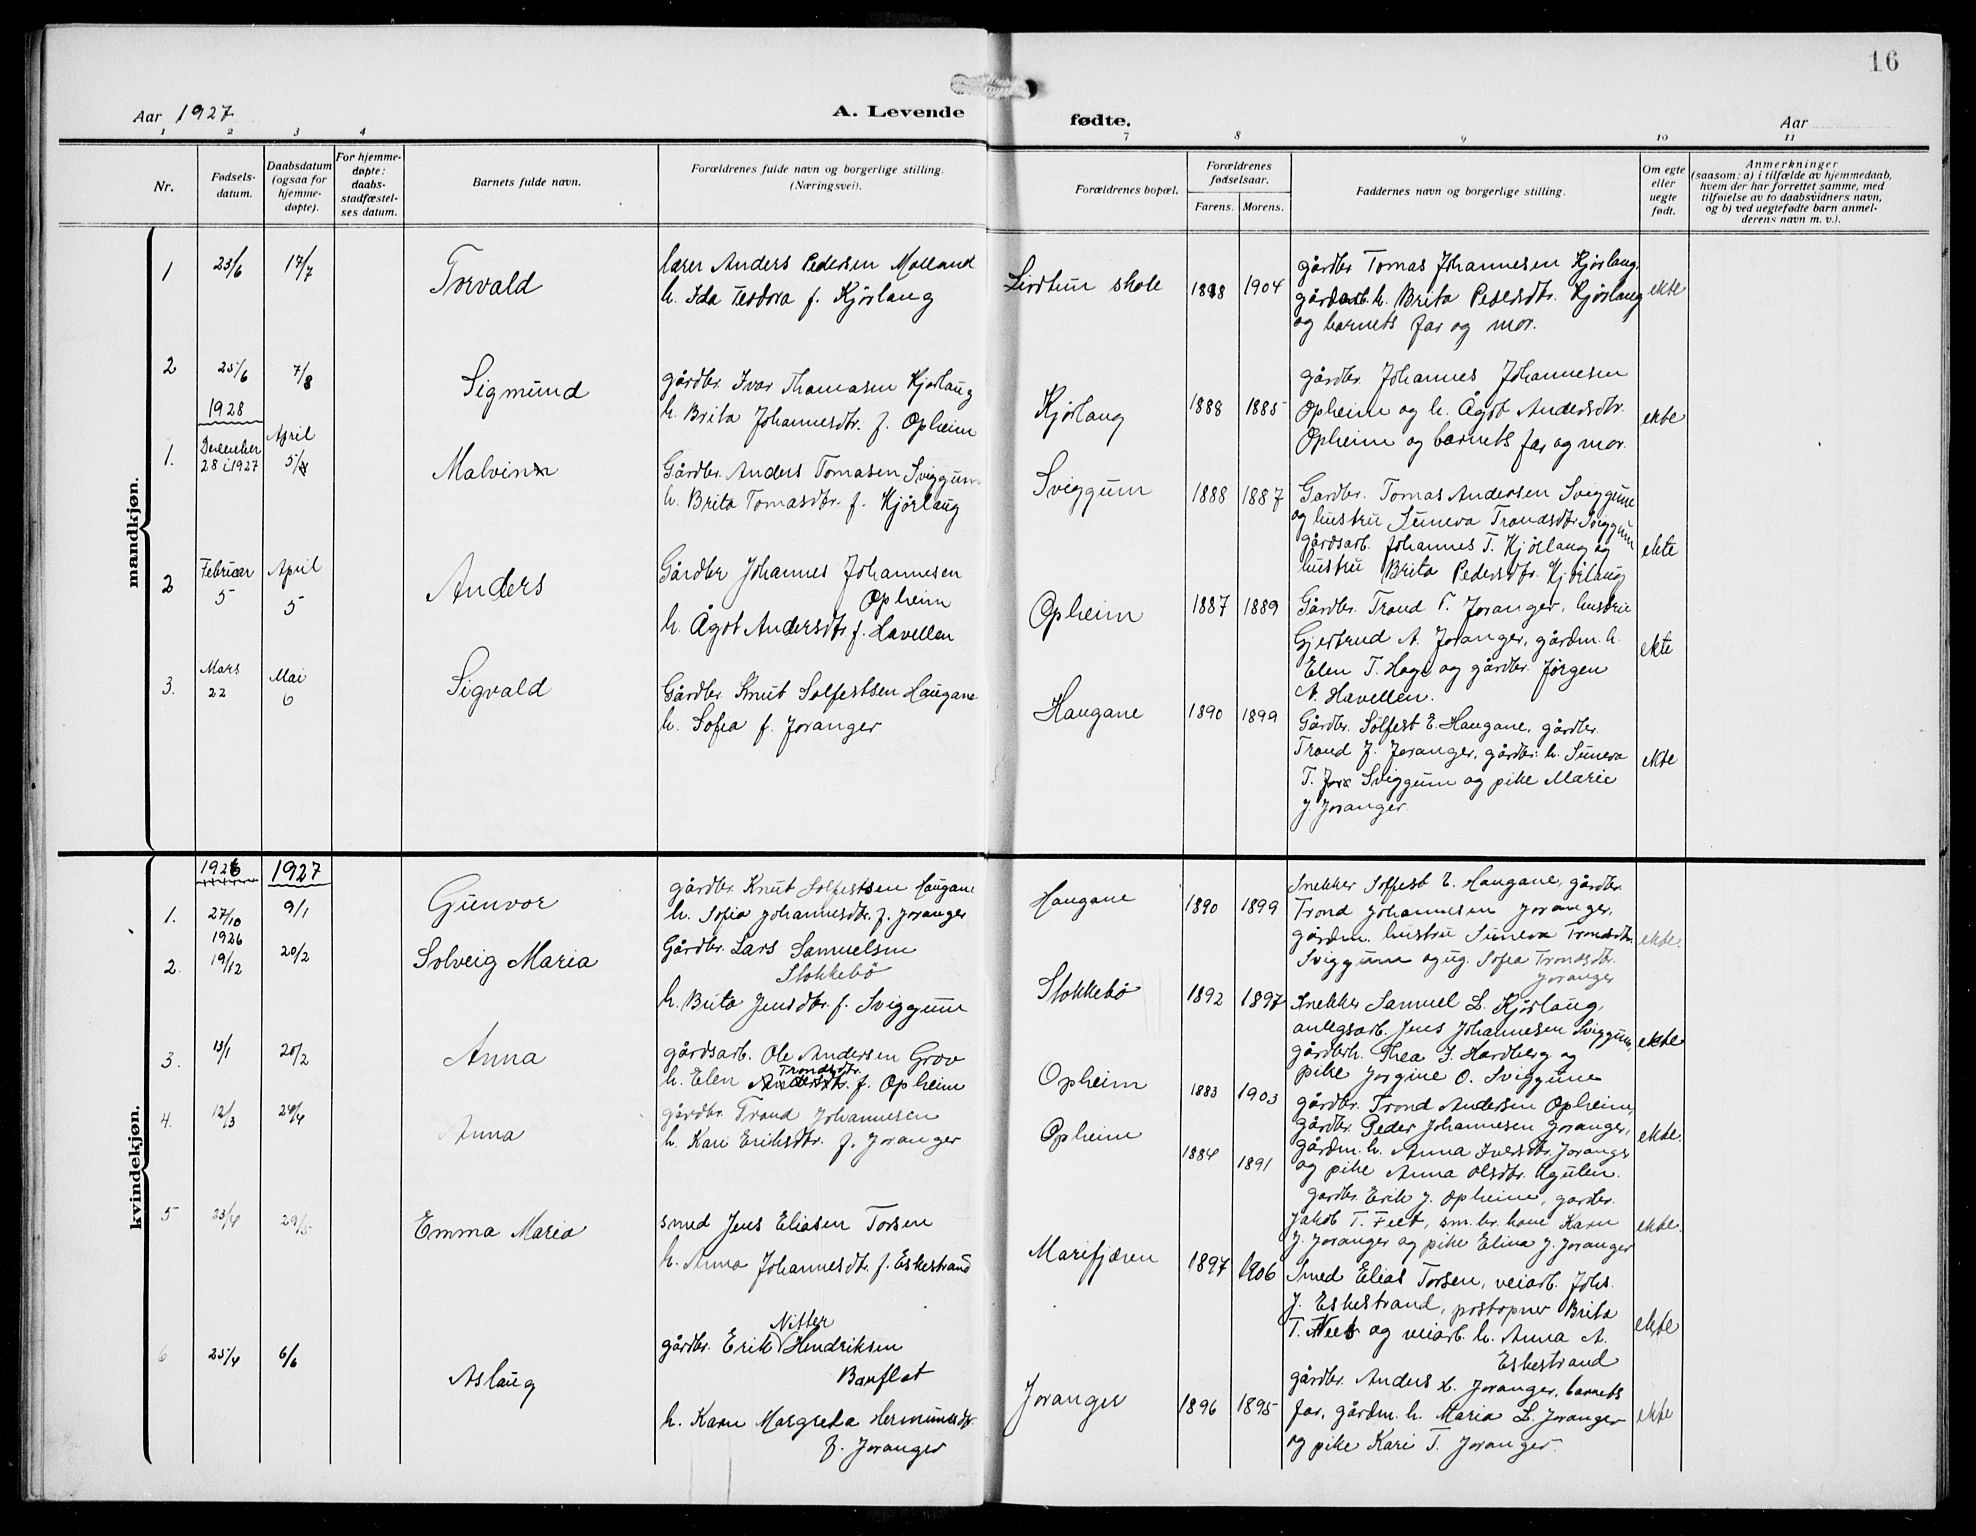 16
Aar 1927
A. Levende
fødte.
Aar
1 2 3 4 7 8 9 10 11
Nr.
Fødsels-
datum.
Daabsdatum
(ogsaa for
hjemme-
døpte).
For hjemme-
døpte:
daabs-
stadfæstel-
ses datum.
Barnets fulde navn.
Forældrenes fulde navn og borgerlige stilling.
(Næringsvei).
Forældrenes bopæl.
Forældrenes
fødselsaar.
Farens. Morens.
Faddernes navn og borgerlige stilling.
Om egte
eller
uegte
født.
Anmerkninger
(saasom: a) i tilfælde av hjemmedaab,
hvem der har forrettet samme, med
tilføielse av to daabsvidners navn,
og b) ved uegtefødte barn anmel-
derens navn m. v.).
mandkjøn.
1 23/6 17/7
Torvald
lærer Anders Pedersen Molland
h. Ida Teodora f. Kjørlaug
skole
1888 1904
gårdbr. Tomas Johannesen Kjørlaug,
gårdarb. h. Brita Pedersdtr. Kjørlaug
og barnets far og mor.
ekte
2 25/6 7/8
Sigmund
gårdbr. Ivar Thomasen Kjørlaug
h. Brita Johannesdtr. f. Opheim
Kjørlaug
1888 1885
gårdbr. Johannes Johannesen
Opheim og h. Ågot Andersdtr.
Opheim og barnets far og mor.
ekte
1928
1. December
28 i 1927
April
5/4
Malvin
Gårdbr. Anders Tomasen Sviggum
h. Brita Tomasdtr. f. Kjørlaug
Sviggum
1888 1887
Gardbr. Tomas Andersen Sviggum
og hustru Suneva Trondsdtr Sviggum
gårdsarb. Johannes T. Kjørlaug og
hustru Brita Pedersdtr. Kjørlaug
ekte
2 Februar
5
April
5
Anders
Gårdbr Johannes Johannesen
Opheim
h. Ågot Andersdtr. f. Havellen
Opheim
1887 1889
Gårdbr. Trond T. Joranger, hustru
Gjertrud A. Joranger, gårdm. h.
Elen T. Hage og gårdbr. Jørgen
N. Havellen.
ekte
3. Mars
22
Mai
6
Sigvald
Gårdbr. Knut Solfestsen Haugane
h. Sofia f. Joranger
Haugane
1890 1899
Gårdbr. Solfest E. Haugane, gårdbr.
Trond J. Joranger, gårdbr. h. Suneva
T. Sviggum og pike Marie
J. Joranger.
ekte
kvindekjøn.
1926 1927
1. 27/10 9/1
Gunvor
gårdbr. Knut Solfestsen Haugane
h. Sofia Johannesdtr. f. Joranger
Haugane
1890 1899
Snekker Solfest E. Haugane, gårdbr.
Trond Johannesen Joranger,
gårdm. hustru Suneva Trondsdtr.
Sviggum og ug. Sofia Trondsdtr.
Joranger
ekte.
1926
2. 19/12 20/2
Solveig Maria
Gårdbr. Lars Samuelsen
Stokkebø
h. Brita Jensdtr. f. Sviggum
Stokkebø
1892 1897
Snekker Samuel L. Kjørlaug,
anlegsarb. Jens Johannesen Sviggum,
gårdbr.h. Thea S. Hardberg og
pike Jorgine O. Sviggum
ekte
3. 13/1 20/2
Anna
gårdsarb. Ole Andersen Grov
Trondsdtr.
h. Elen Andersdtr. f. Opheim
Opheim
1883 1903
gårdbr. Trond Andersen Opheim,
gårdbr. Peder Johannesen Joranger,
gårdm. h. Anna Iversdtr. Joranger
og pike Anna Olsdtr. Kgulen.
ekte.
4. 12/3 24/4
Anna
gårdbr. Trond Johannesen
h. Kari Eriksdtr. f. Joranger
Opheim
1884 1891
gardbr. Erik J. Opheim, gardbr.
Jakob T. Feet, sm. br. kone Karn
J. Joranger og pike Elina J. Joranger
ekte.
5 23/4 29/5
Emma Maria
smed Jens Eliasen Torsen
h. Anna Johannesdtr. f. Eskestrand
Marifjæren
1897 1906
Smed Elias Torsen, veiarb. Johs.
J. Eskestrand, postopner Brita
T. og veiarb. h. Anna A.
Eskestrand
ekte
6 25/4 6/6
Aslaug
Nitter
gårdbr. Erik Hendriksen
Bauflot
h. Karn Margreta Hermundsdtr.
f. Joranger
Joranger
1896 1895
gårdbr. Anders L. Joranger, barnets
far, gårdm. h. Maria L. Joranger
og pike Kari T. Joranger.
ekte